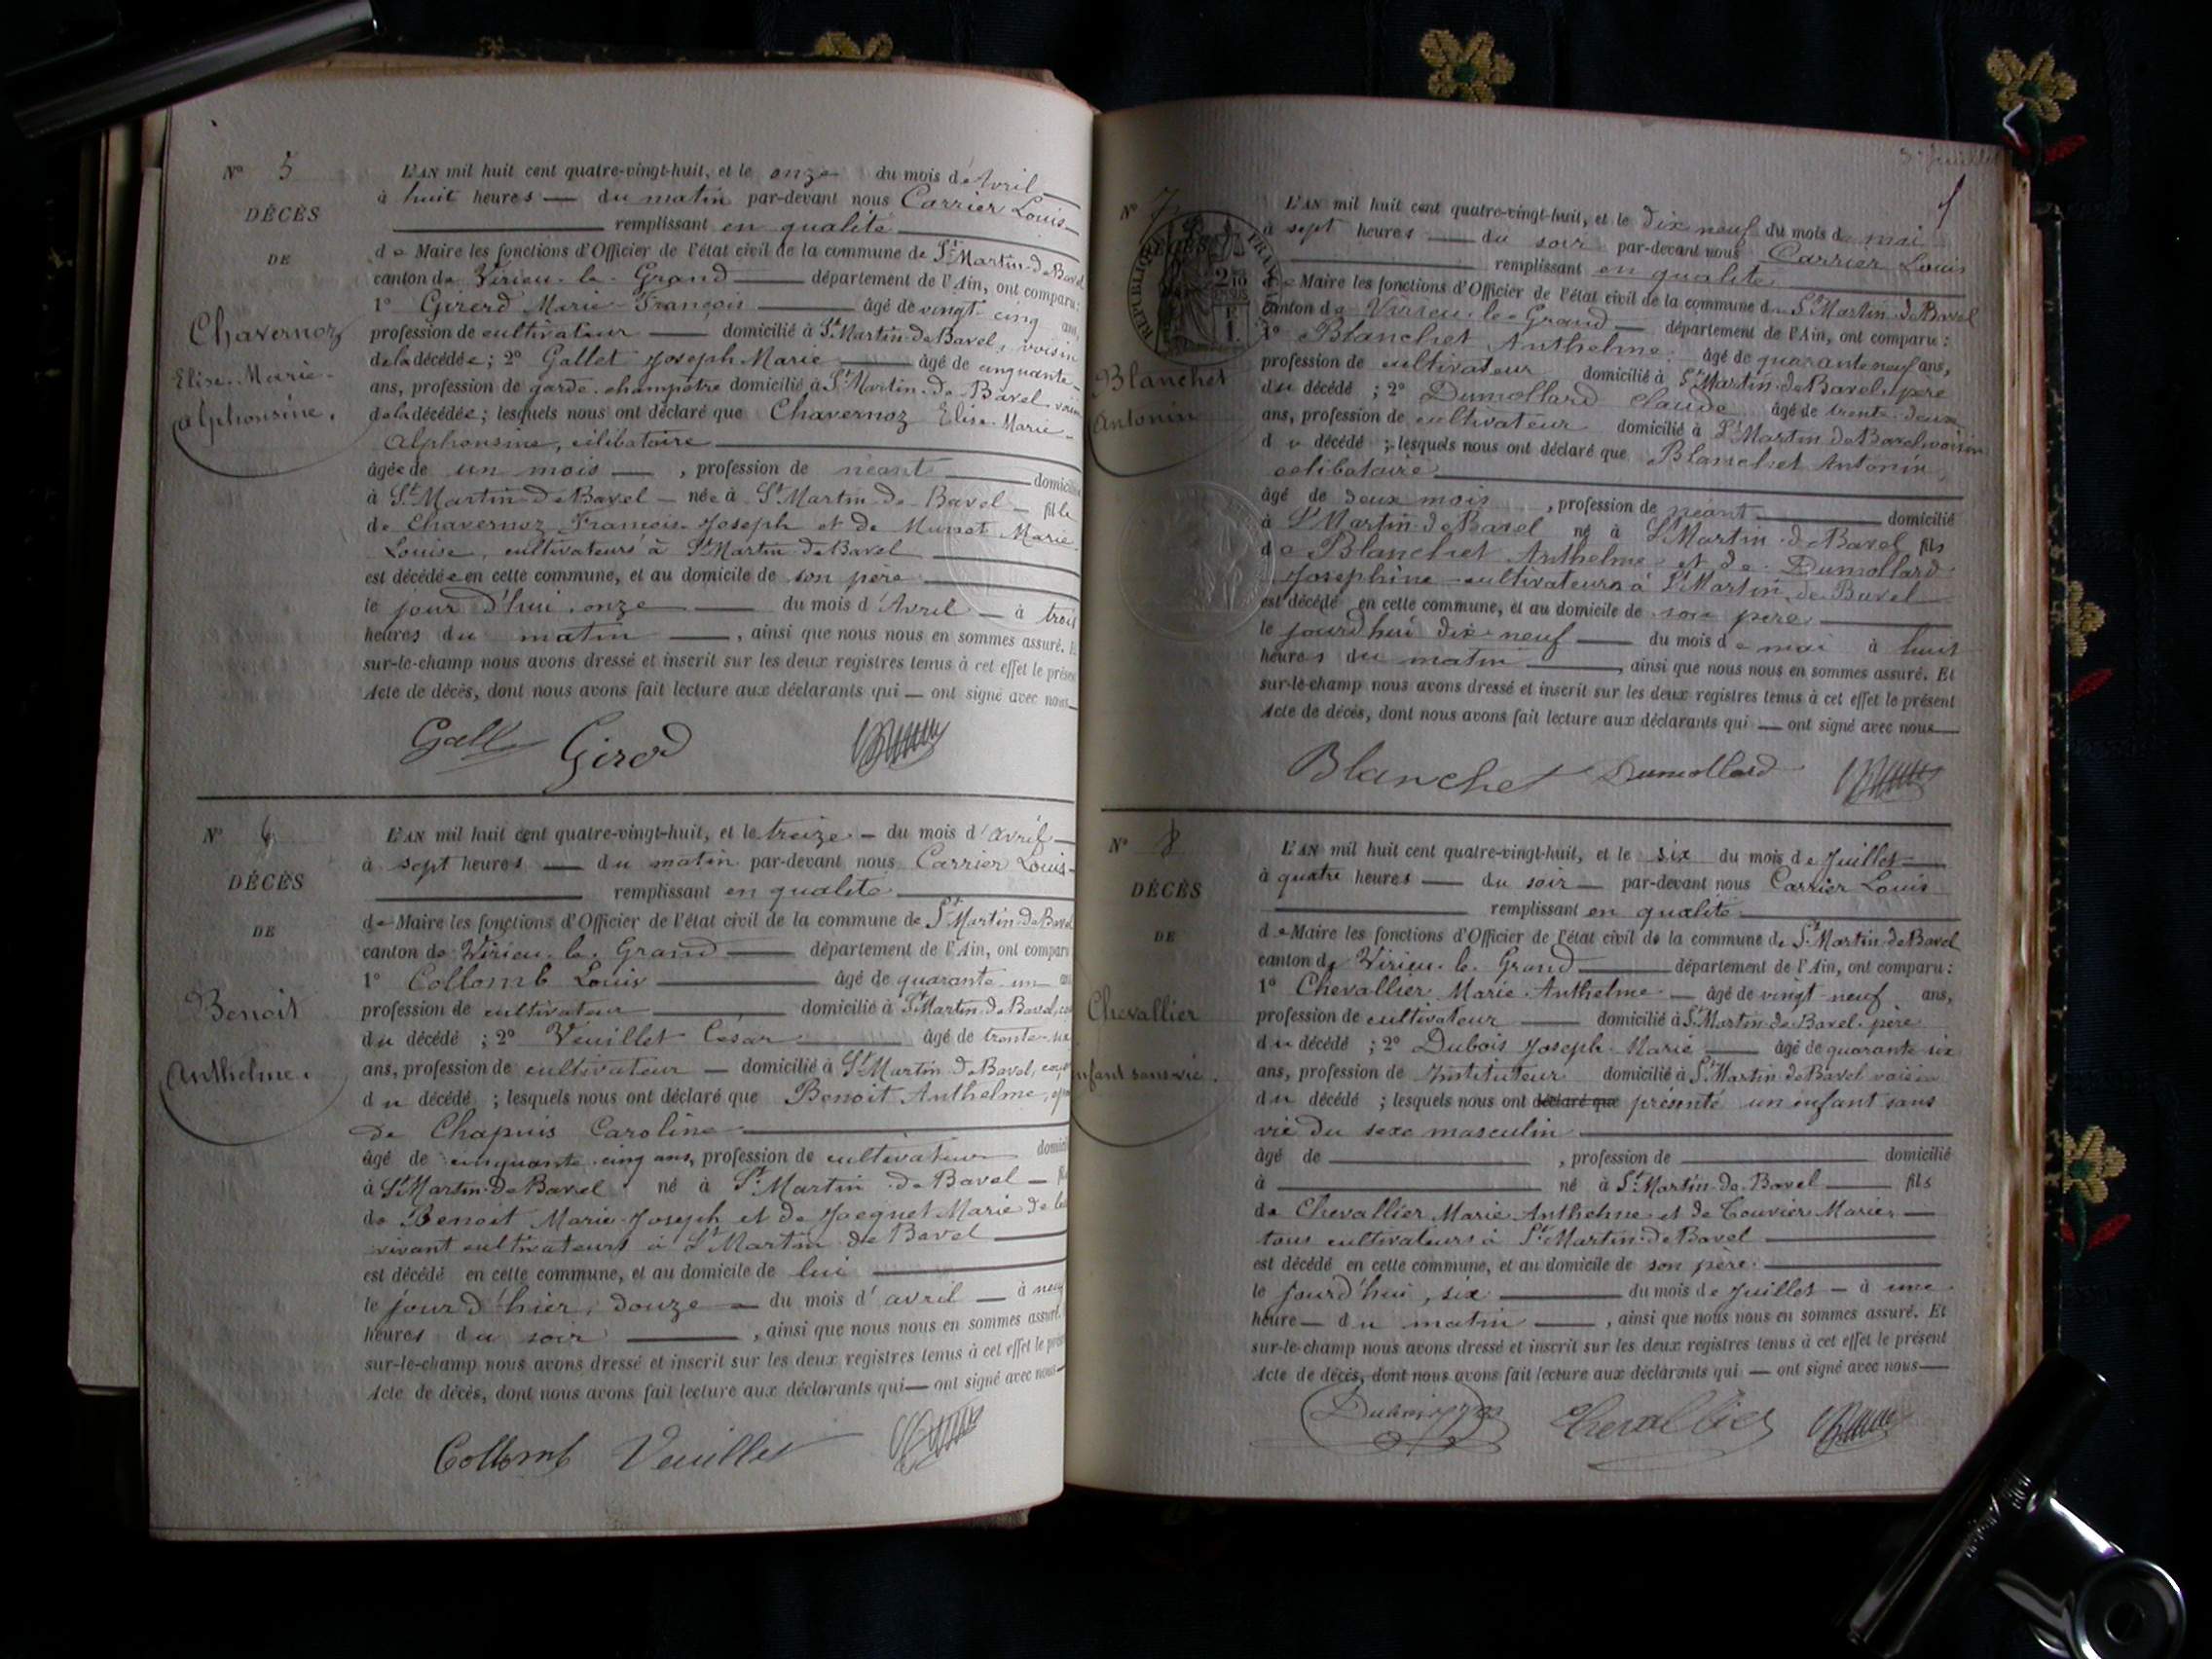 N° 5
DÉCÈS
DE
Chavernoz
Elise-Marie-
Alphonsine.
L'AN mil huit cent quatre-vingt-huit, et le onze du mois d'Avril
à huit heures du matin par-devant nous Carrier Louis
remplissant en qualité
de Maire les fonctions d'Officier de l'état civil de la commune de St Martin-de Bavel
canton de Virieu-le-Grand département de l'Ain, ont comparu:
1° Gererd Marie-François âgé de vingt-cinq ans,
profession de cultivateur domicilié à St Martin-de Bavel, voisin
de la décédée; 2° Gallet Joseph-Marie âgé de cinquante-
ans, profession de garde-champêtre domicilié à St Martin-de Bavel voisin
de la décédée; lesquels nous ont déclaré que Chavernoz Elise-Marie-
Alphonsine, célibataire
âgée de un mois, profession de néant domicilié
à St Martin-de Bavel née à St Martin-de Bavel fille
de Chavernoz François-Joseph et de Munet Marie-
Louise, cultivateurs à St Martin-de Bavel
est décédée en cette commune, et au domicile de son père
le jour d'hui onze du mois d'Avril à trois
heures du matin, ainsi que nous nous en sommes assuré. Et
sur-le-champ nous avons dressé et inscrit sur les deux registres tenus à cet effet le présent
Acte de décès, dont nous avons fait lecture aux déclarants qui ont signé avec nous
Gallet Girod
N° 6
DÉCÈS
DE
Benoit
Anthelme.
L'AN mil huit cent quatre-vingt-huit, et le treize du mois d'avril
à sept heures du matin par-devant nous Carrier Louis
remplissant en qualité
de Maire les fonctions d'Officier de l'état civil de la commune de St Martin-de Bavel
canton de Virieu-le-Grand département de l'Ain, ont comparu
1° Collomb Louis âgé de quarante-un ans
profession de cultivateur domicilié à St Martin-de Bavel,
du décédé; 2° Veuillet César âgé de trente-six
ans, profession de cultivateur domicilié à St Martin de Bavel,
du décédé; lesquels nous ont déclaré que Benoit Anthelme, époux
de Chapuis Caroline
âgé de cinquante-cinq ans, profession de cultivateur domicilié
à St Martin-de Bavel né à St Martin-de Bavel fils
de Benoit Marie-Joseph et de Jacquet Marie de leur
vivant cultivateurs à St Martin de Bavel
est décédé en cette commune, et au domicile de lui
le jour d'hier, douze du mois d'avril à neuf
heures du soir, ainsi que nous nous en sommes assuré.
sur-le-champ nous avons dressé et inscrit sur les deux registres tenus à cet effet le présent
Acte de décès, dont nous avons fait lecture aux déclarants qui ont signé avec nous
Collomb Veuillet
N° 7
DÉCÈS
Blanchet
Antonin
L'AN mil huit cent quatre-vingt-huit, et le dix neuf du mois de mai
à sept heures du soir par-devant nous Carrier Louis
remplissant en qualité
de Maire les fonctions d'Officier de l'état civil de la commune de St Martin-de Bavel
canton de Virieu-le-Grand département de l'Ain, ont comparu:
1° Blanchet Anthelme âgé de quarante neuf ans,
profession de cultivateur domicilié à St Martin-de Bavel, père
du décédé; 2° Dumollard Claude âgé de trente-deux
ans, profession de cultivateur domicilié à St Martin de Bavel, voisin
du décédé; lesquels nous ont déclaré que Blanchet Antonin,
célibataire
âgé de deux mois, profession de néant domicilié
à St Martin-de Bavel né à St Martin-de Bavel fils
de Blanchet Anthelme et de Dumollard
Josephine cultivateurs à St Martin de Bavel
est décédé en cette commune, et au domicile de son père
le jourd'hui dix-neuf du mois de mai à huit
heures du matin, ainsi que nous nous en sommes assuré. Et
sur-le-champ nous avons dressé et inscrit sur les deux registres tenus à cet effet le présent
Acte de décès, dont nous avons fait lecture aux déclarants qui ont signé avec nous
Blanchet Dumollard
N° 8
DÉCÈS
DE
Chevallier
enfant sans vie.
L'AN mil huit cent quatre-vingt-huit, et le six du mois de Juillet
à quatre heures du soir par-devant nous Carrier Louis
remplissant en qualité
de Maire les fonctions d'Officier de l'état civil de la commune de St Martin-de Bavel
canton de Virieu-le-Grand département de l'Ain, ont comparu:
1° Chevallier Marie-Anthelme âgé de vingt-neuf ans,
profession de cultivateur domicilié à St Martin-de Bavel, père
du décédé; 2° Dubois Joseph-Marie âgé de quarante-six
ans, profession de Instituteur domicilié à St Martin de Bavel voisin
du décédé; lesquels nous ont déclaré que présenté un enfant sans
vie du sexe masculin
âgé de , profession de domicilié
à né à St Martin-de-Bavel fils
de Chevallier Marie Anthelme et de Touvier Marie,
tous cultivateurs à St Martin-de Bavel
est décédé en cette commune, et au domicile de son père
le jourd'hui, six du mois de Juillet à une
heure du matin, ainsi que nous nous en sommes assuré. Et
sur-le-champ nous avons dressé et inscrit sur les deux registres tenus à cet effet le présent
Acte de décès, dont nous avons fait lecture aux déclarants qui ont signé avec nous
Dubois Chevallier